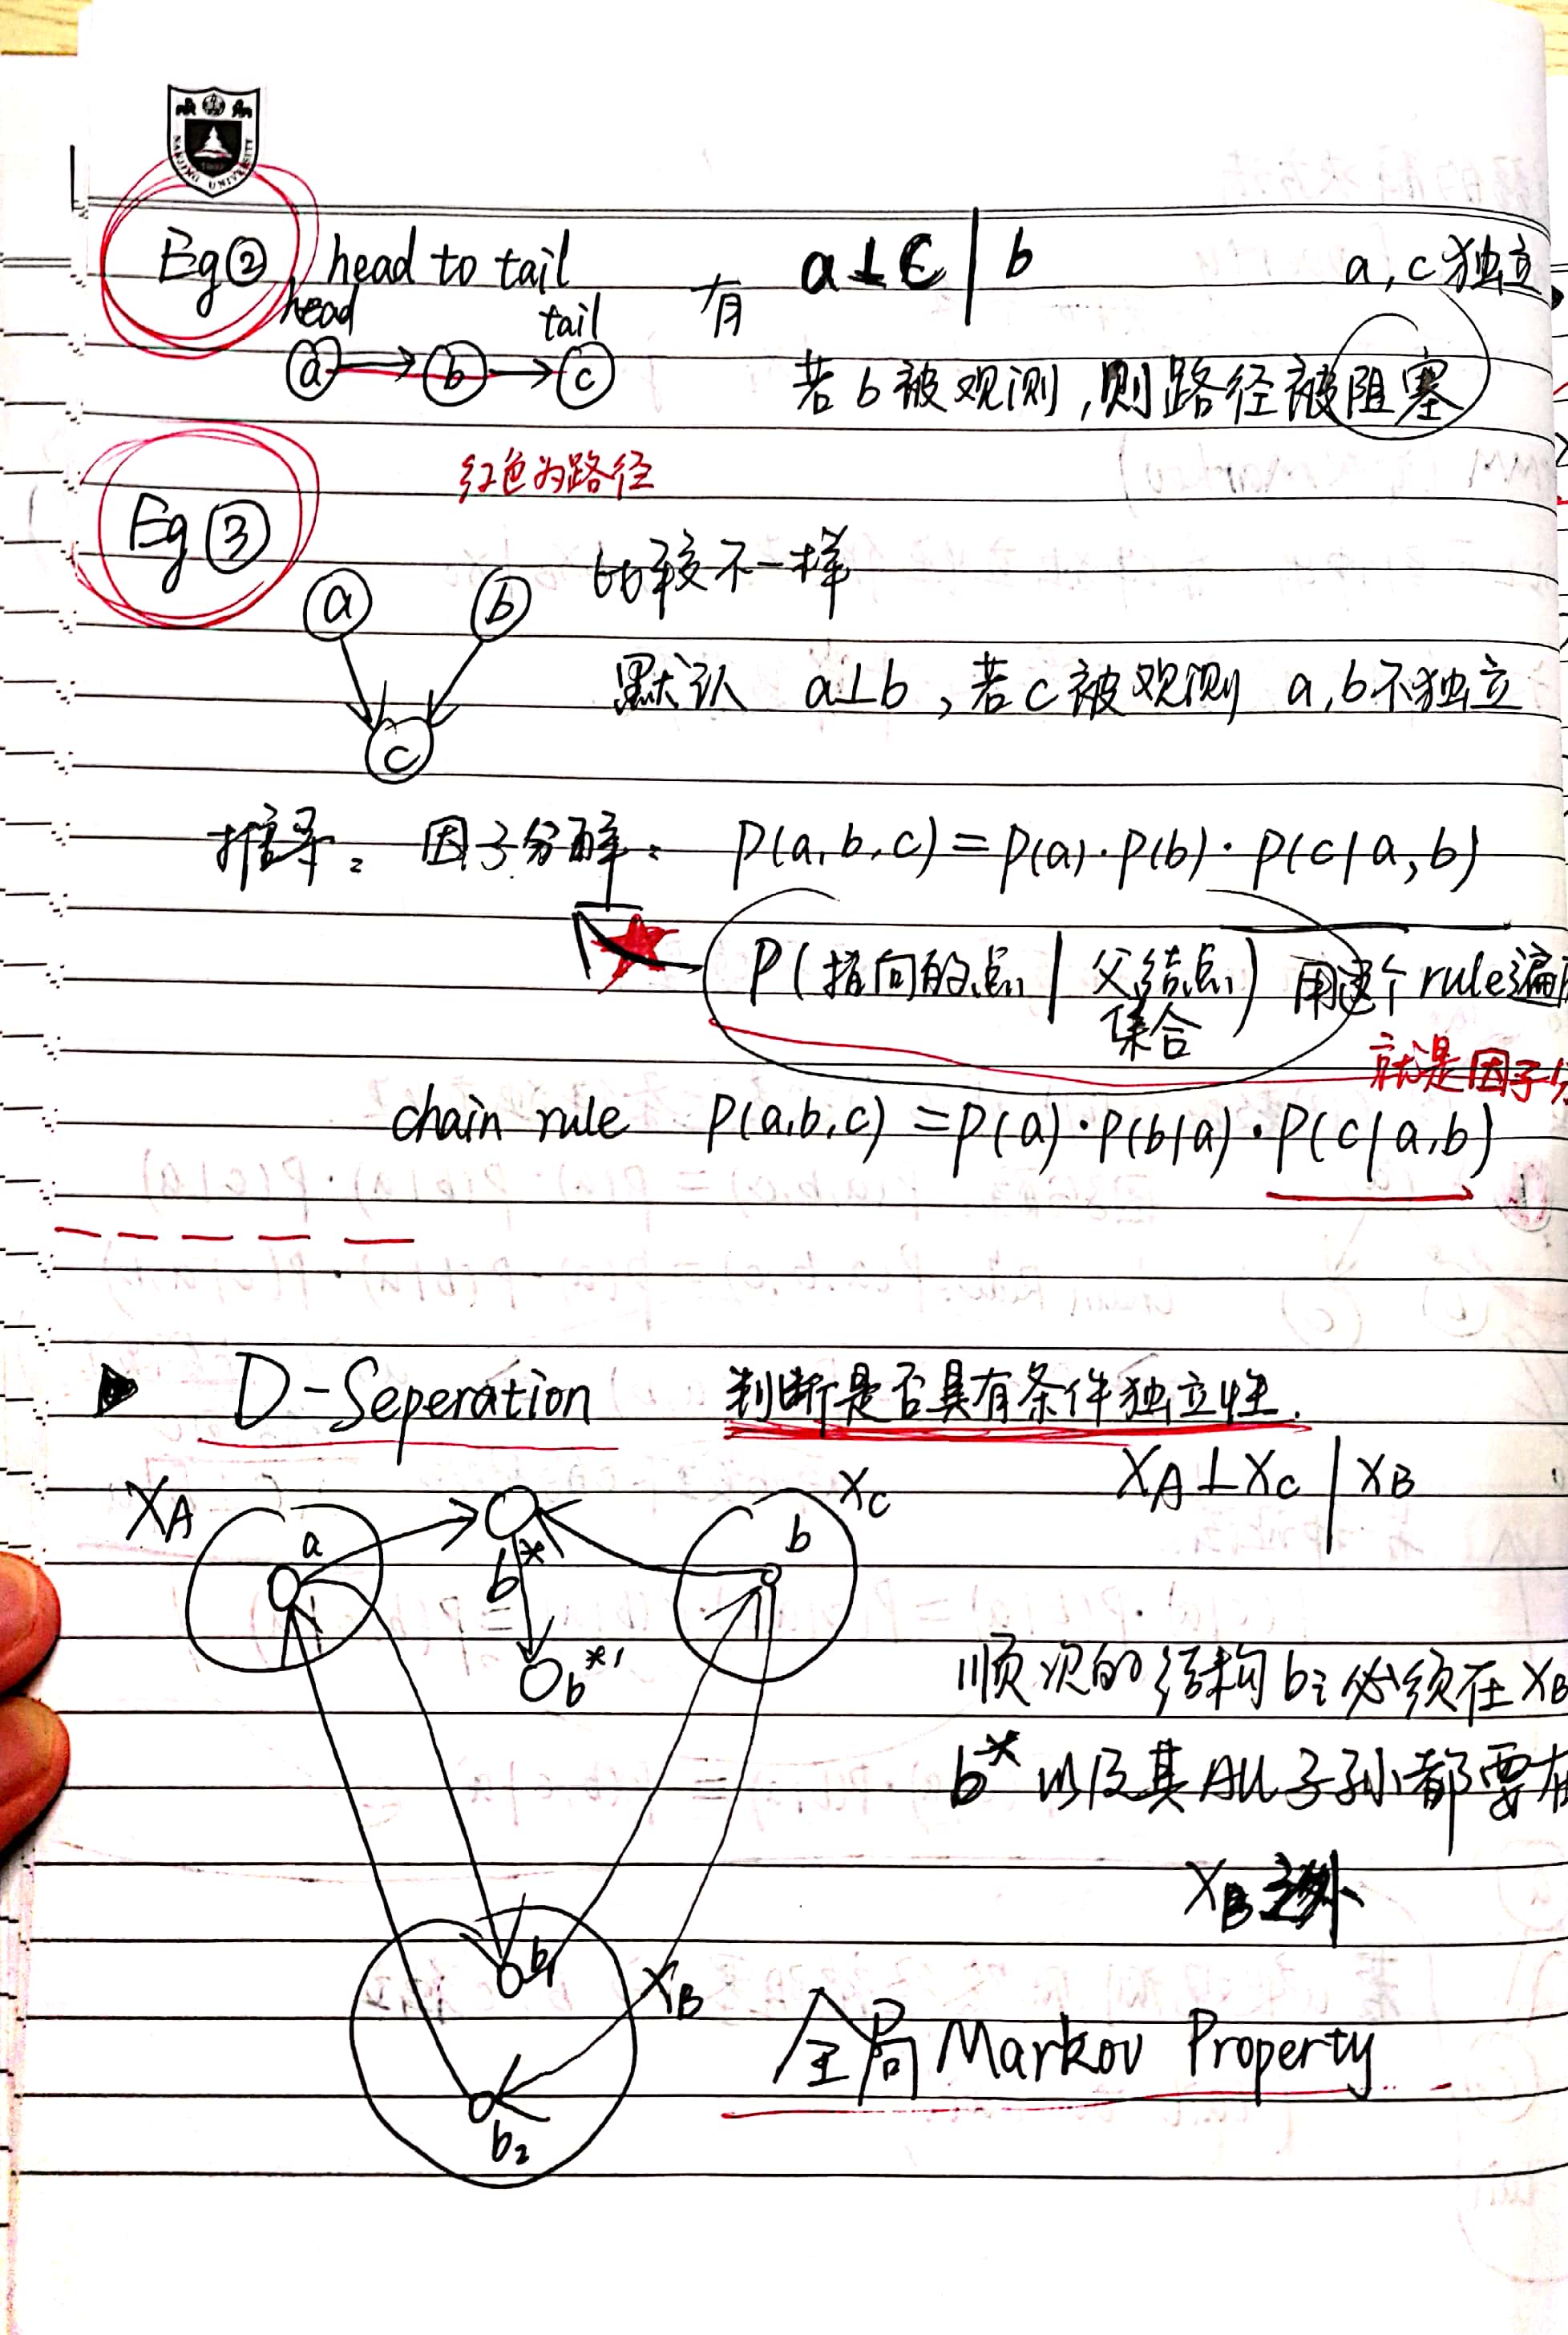 NANJING UNIVERSITY
Eg② head to tail 有 a⊥c | b a,c独立
head tail
a b c 若b被观测,则路径被阻塞
红色为路径
Eg③
a b 比较不一样
默认 a⊥b,若c被观测 a,b不独立
c
推导: 因子分解: P(a,b,c)=P(a)·P(b)·P(c|a,b)
P(指向的点|父结点集合) 用这个rule遍
就是因子
chain rule P(a,b,c)=P(a)·P(b|a)·P(c|a,b)
D-Seperation 判断是否具有条件独立性.
XA XC XA⊥XC | XB
a b* b
b*'
顺次的结构bi必须在XB
b*以及其ALL子孙都要在
XB之外
b1 XB
全局Markov Property
b2